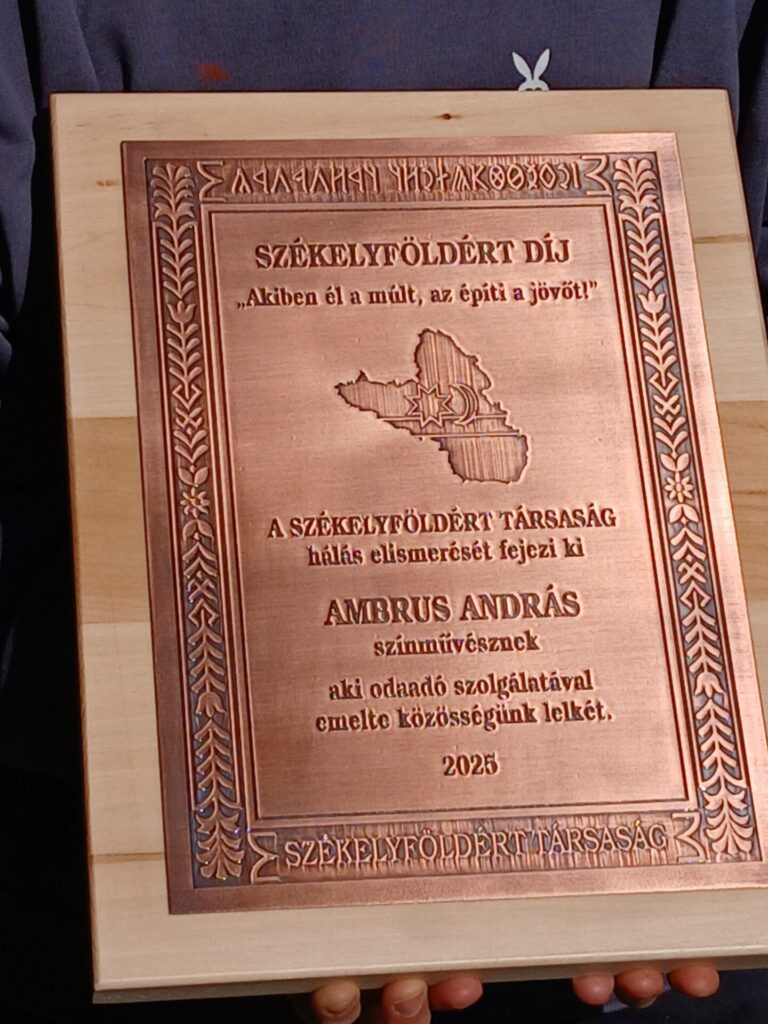 SZÉKELYFÖLDÉRT DÍJ
„Akiben él a múlt, az építi a jövőt!”
A SZÉKELYFÖLDÉRT TÁRSASÁG
hálás elismerését fejezi ki
AMBRUS ANDRÁS
színművésznek
aki odaadó szolgálatával
emelte közösségünk lelkét.
2025
SZÉKELYFÖLDÉRT TÁRSASÁG